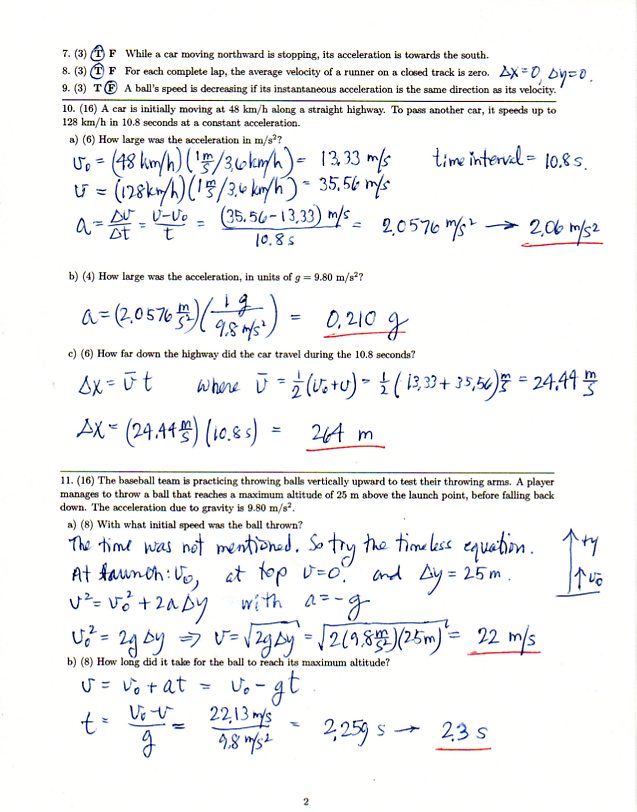 7. (3) T F While a car moving northward is stopping, its acceleration is towards the south.
8. (3) T F For each complete lap, the average velocity of a runner on a closed track is zero. Δx=0, Δy=0.
9. (3) T F A ball's speed is decreasing if its instantaneous acceleration is the same direction as its velocity.
10. (16) A car is initially moving at 48 km/h along a straight highway. To pass another car, it speeds up to
128 km/h in 10.8 seconds at a constant acceleration.
a) (6) How large was the acceleration in m/s²?
v₀ = (48 km/h)(1 m/s /3.6 km/h) = 13.33 m/s time interval = 10.8 s.
v = (128 km/h)(1 m/s /3.6 km/h) = 35.56 m/s
a = Δv/Δt = v-v₀/t = (35.56-13.33) m/s / 10.8 s = 2.0576 m/s² → 2.06 m/s²
b) (4) How large was the acceleration, in units of g = 9.80 m/s²?
a = (2.0576 m/s²)(1 g/9.8 m/s²) = 0.210 g
c) (6) How far down the highway did the car travel during the 10.8 seconds?
Δx = v̄ t where v̄ = 1/2(v₀+v) = 1/2(13.33 + 35.56) m/s = 24.44 m/s
Δx = (24.44 m/s)(10.8 s) = 264 m
11. (16) The baseball team is practicing throwing balls vertically upward to test their throwing arms. A player
manages to throw a ball that reaches a maximum altitude of 25 m above the launch point, before falling back
down. The acceleration due to gravity is 9.80 m/s².
a) (8) With what initial speed was the ball thrown?
The time was not mentioned. So try the timeless equation. +y
At launch: v₀, at top v=0. and Δy = 25 m. v₀
v² = v₀² + 2aΔy with a = -g
v₀² = 2gΔy ⇒ v = √2gΔy = √2(9.8 m/s²)(25m) = 22 m/s
b) (8) How long did it take for the ball to reach its maximum altitude?
v = v₀ + at = v₀ - gt
t = v₀-v/g = 22.13 m/s / 9.8 m/s² = 2.259 s → 2.3 s
2